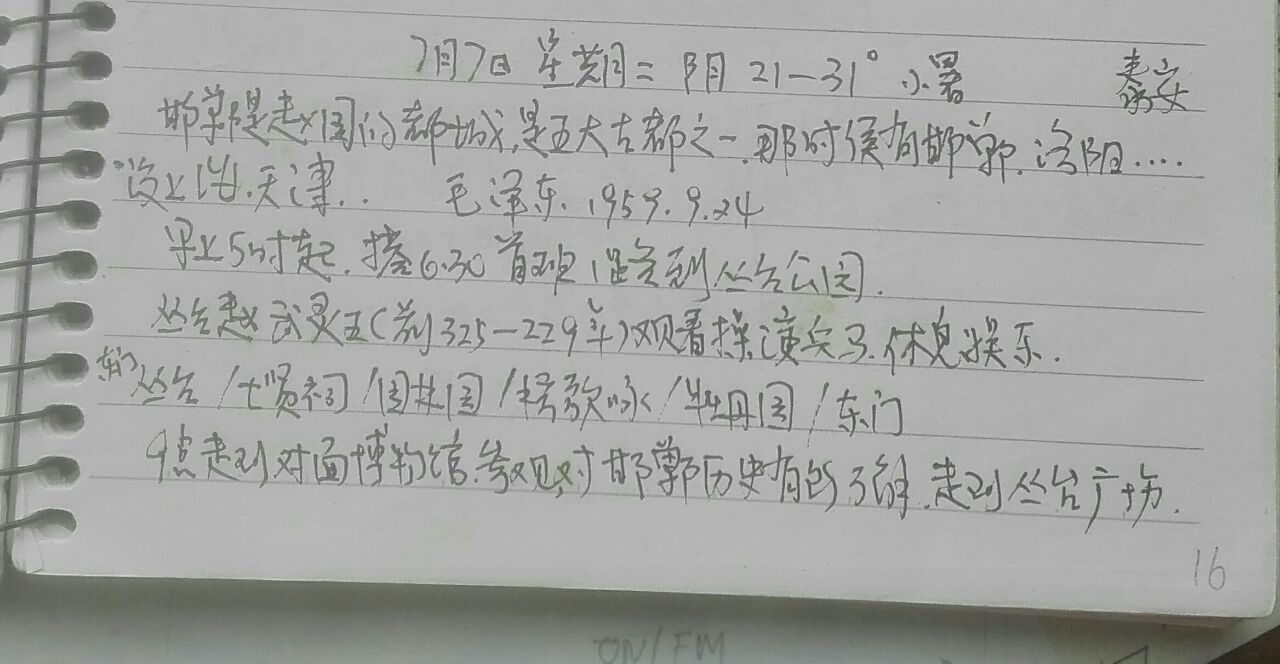 7月7日 星期二 阴 21—31° 小暑
邯郸是赵国的都城,是五大古都之一.那时候有邯郸.洛阳....
没上海.天津.. 毛泽东.1959.9.24
早上5时起.搭6.30首班 到丛台公园.
丛台赵武灵王(前325—229年)观看操演兵马.休息娱乐.
东门 丛台/七贤祠/园林园/ 歌咏/牡丹园/东门
9点走到对面博物馆.参观,对邯郸历史有所了解.走到丛台广场.
16
ON/FM